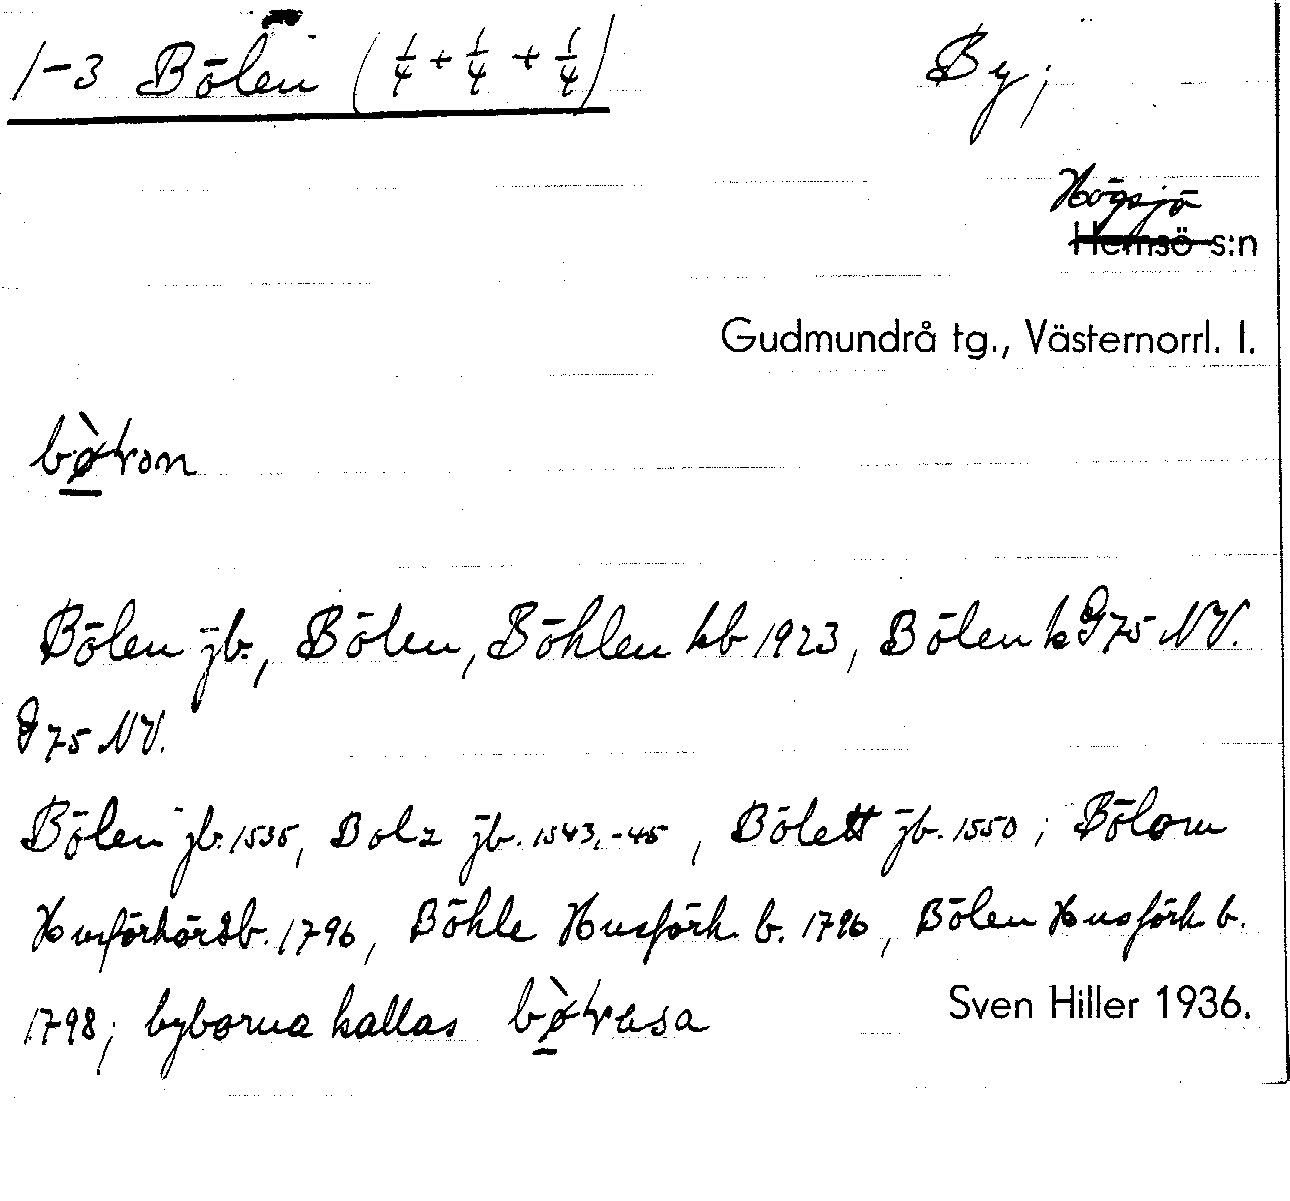 1-3 Bölen (1/4 + 1/4 + 1/4) By;
Högsjö
Hemsö s:n
Gudmundrå tg., Västernorrl. l.
Bölen jb., Bölen, Böhlen kb 1923, Bölen k G75 NV.
G 75 NV.
Bölen jb. 1535, Bolz jb. 1543,-45, Bölett jb. 1550; Bölom
Husförhörsb. 1796, Böhle Husförh. b. 1796, Bölen Husförh. b.
1798; byborna kallas
Sven Hiller 1936.